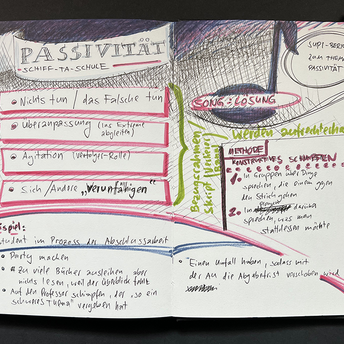 PASSIVITÄT
SCHIFF-TA-SCHULE
• Nichts tun / das Falsche tun
• Überanpassung (ins Extreme
abgleiten)
• Agitation (Verfolger-Rolle)
• Sich/Andere "Verunfähigen"
Student im Prozess der Abschlussarbeit
• Party machen
• zu viele Bücher ausleihen, aber
nicht lesen, weil der Überblick fehlt
• Auf den Professor schimpfen, der "so ein
schweres Thema" vergeben hat
SONG = LÖSUNG
ZUM THEMA
PASSIVITÄT
Bezugsrahmen
Skript
werden aufrechterhal
METHODE
KONSTRUKTIVES SCHIMPFEN
1. In Gruppen über Dinge
sprechen, die einem gegen
den Strich gehen
2. In darüber
sprechen, was man
stattdessen möchte
• "Einen Unfall haben, sodass mit
der AU die Abgabefrist verschoben wird